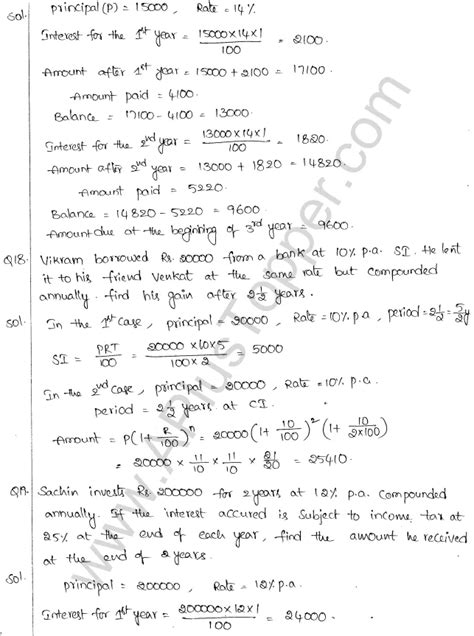 Sol. principal (P) = 15000, Rate = 14%
Interest for the 1st year = 15000×14×1/100 = 2100.
Amount after 1st year = 15000 + 2100 = 17100
Amount paid = 4100.
Balance = 17100 - 4100 = 13000.
Interest for the 2nd year = 13000×14×1/100 = 1820.
Amount after 2nd year = 13000 + 1820 = 14820.
Amount paid = 5220.
Balance = 14820 - 5220 = 9600
Amount due at the beginning of 3rd year = 9600.
Q18. Vikram borrowed Rs. 20000 from a bank at 10% p.a. SI. He lent
it to his friend Venkat at the same rate but compounded
annually. find his gain after 2 1/2 years.
Sol. In the 1st Case, principal = 20000, Rate = 10% p.a, period = 2 1/2 = 5/2 y
SI = PRT/100 = 20000×10×5/100×2 = 5000
In the 2nd case, principal = 20000, Rate = 10% p.a.
period = 2 1/2 years at CI.
Amount = P(1+R/100)^n = 20000(1+10/100)^2 (1+10/2×100)
= 20000 × 11/10 × 11/10 × 21/20 = 25410.
Sachin invests Rs. 200000 for 2 years at 12% p.a. compounded
annually. If the interest accured is subject to income tax at
25% at the end of each year, find the amount he received
at the end of 2 years.
Sol. principal = 200000, Rate = 12% p.a.
Interest for 1st year = 200000×12×1/100 = 24000.
www.APlusTopper.com